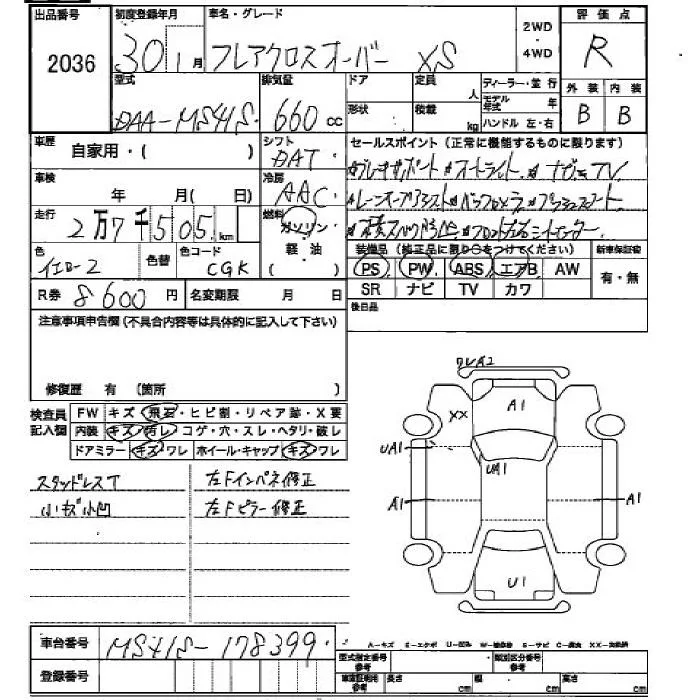 出品番号 初度登録年月 車名・グレード 評価点
2036 30 1月 フレアクロスオーバー XS 2WD・4WD R
型式 排気量 ドア 定員 人 ディーラー・並行 外装 内装
DAA-MS41S 660cc 形状 積載 kg モデル年式 年 ハンドル 左・右 B B
車歴 自家用・( ) シフト DAT セールスポイント (正常に機能するものに限ります)
ブレーキサポート オートライト ナビ TV
車検 年 月( 日) 冷房 AAC
走行 2万7千505km 燃料 ガソリン・軽油
色 イエロー2 色替 色コード CGK
装備品 (純正品に限り○をつけてください) 新車保証書
PS PW ABS エアB AW 有・無
SR ナビ TV カワ
R券 8600円 名変期限 月 日
後日品
注意事項申告欄 (不具合内容等は具体的に記入して下さい)
修復歴 有 (箇所 )
検査員記入欄 FW キズ・飛石・ヒビ割・リペア跡・X要
内装 キズ・汚レ・コゲ・穴・スレ・ヘタリ・破レ
ドアミラー キズ・ワレ ホイール・キャップ キズ・ワレ
スタッドレスT 左Fインパネ修正
小キズ小凹 左Fピラー修正
ワレA2
XX A1
UA1 UA1
A1 A1
U1
車台番号 MS41S-178399
登録番号
A-キズ E-エクボ U-凹み W-補修跡 S-サビ C-腐食 XX-交換済
型式指定番号 参考 類別区分番号 参考
車庫証明用 参考 長さ cm 幅 cm 高さ cm